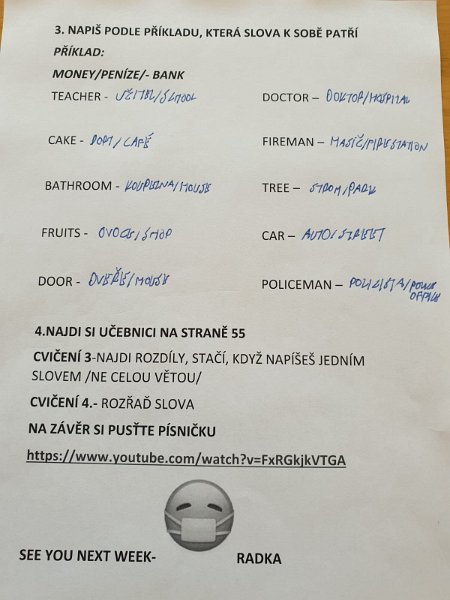 3. NAPIŠ PODLE PŘÍKLADU, KTERÁ SLOVA K SOBĚ PATŘÍ
PŘÍKLAD:
MONEY/PENÍZE/- BANK
TEACHER - UČITEL/SCHOOL
DOCTOR – DOKTOR/HOSPITAL
CAKE - DORT/CAFÉ
FIREMAN – HASIČ/FIRESTATION
BATHROOM - KOUPELNA/HOUSE
TREE – STROM/PARK
FRUITS - OVOCE/SHOP
CAR – AUTO/STREET
DOOR - DVEŘE/HOUSE
POLICEMAN – POLICISTA/POLICE
OFFICE
4.NAJDI SI UČEBNICI NA STRANĚ 55
CVIČENÍ 3-NAJDI ROZDÍLY, STAČÍ, KDYŽ NAPÍŠEŠ JEDNÍM
SLOVEM /NE CELOU VĚTOU/
CVIČENÍ 4.- ROZŘAĎ SLOVA
NA ZÁVĚR SI PUSŤTE PÍSNIČKU
https://www.youtube.com/watch?v=FxRGkjkVTGA
SEE YOU NEXT WEEK- RADKA